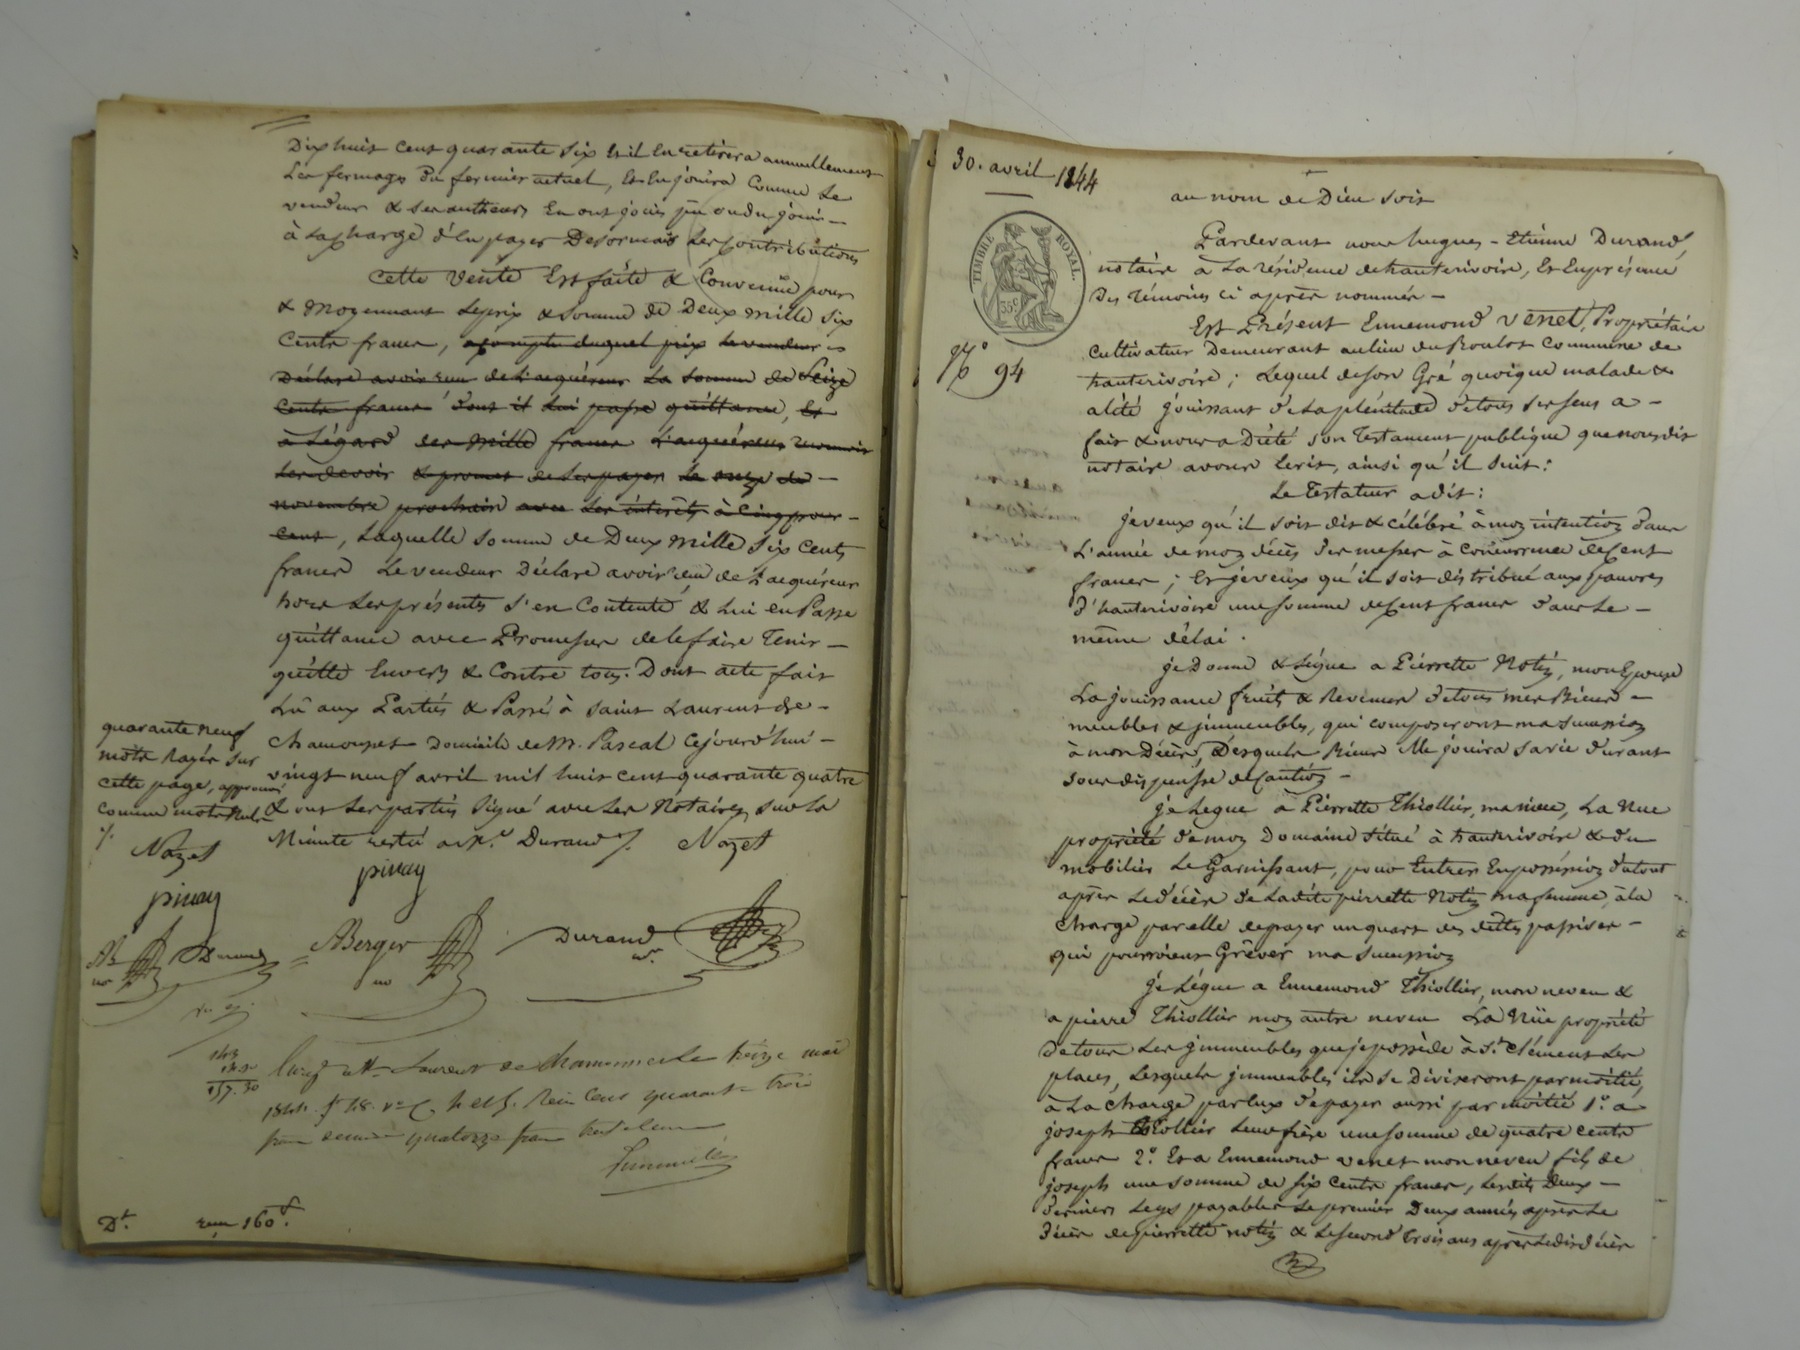 Dixhuit cent quarante six et il en retirera annuellement
Les fermages du fermier actuel, Et En jouira Comme Le
vendeur & ses autheurs En ont joui pu ou du jouir –
à La Charge d'En payer Desormais Les Contributions
Cette Vente Est faite & Convenue pour
& Moyennant Le prix & Somme de Deux Mille Six
Cents francs, acompte duquel prix Le vendeur
Déclare avoir reçu de L'acquéreur La Somme de Seize
Cents francs dont il Lui passe quittance, Et
à L'égard des Mille francs L'acquéreur reconnait
Les devoir & promet de Les payer Le onze de –
novembre prochain avec Les intérêts à Cinq pour –
Cent, Laquelle Somme de Deux Mille Six Cents
francs Le vendeur Déclare avoir reçu de L'acquéreur
Les présentes S'en Contente & Lui en Passe
quittance avec Promesse de Le faire Tenir –
quitte Envers & Contre tous. Dont acte fait
Lû aux Parties & Passé à Saint Laurent de –
Chamousset Domicile de M. Pascal Cejourd'hui –
vingt neuf avril mil huit cent quarante quatre
& ont Les parties Signé avec Les Notaires Sur La
Minute restée à Me. Durand /. Nozet
quarante neuf
mots Rayés Sur
cette page, approuvé
comme mots Nuls
/.
Nozet
pinay
pinay
AB Durand ABerger Durand
no no nre.
143
14.30
157.30
Enreg. à St. Laurent de Chamousset Le treize mai
1844. fo 118. Vo C. Reçu Cent quarante trois
francs decime quatorze francs trente Centimes
Dt. reçu 160f.
30. avril 1844
TIMBRE ROYAL.
35c
No 94
au nom de Dieu soit
Pardevant nous hugues - Etienne Durand,
notaire à La résidence dehauterivoire, Et En présence
Des témoins ci après nommés –
Est Présent Ennemond Venet, Propriétaire
Cultivateur Demeurant au lieu du Roulot Commune de
hauterivoire; Lequel de son Gré quoique malade &
alité jouissant de La plénitude de tous Ses sens a –
fait & nous a Dicté Son Testament publique que nousdit
notaire avons Ecrit, ainsi qu'il Suit:
Le Testateur a dit:
je veux qu'il soit dit & célébré à mon intention dans
L'année de mon décès des messes à Concurrence de Cent
francs; Et je veux qu'il soit distribué aux pauvres
d'hauterivoire une somme de Cent francs dans Le –
même délai.
je Donne & Légue a Pierrette Notin, mon Epouse
La jouissance fruits & Revenus de tous mes Biens –
meubles & immeubles, qui composeront ma Succession
à mon Décès, Desquels Biens Elle jouira sa vie durant
Sous dispense de Caution –
je Legue à Pierrette Thiollier, ma niece, La Nue
propriété de mon Domaine Situé à hauterivoire & du
mobilier Le Garnissant, pour Entrer En possession du tout
après Le décès de Ladite pierrette Notin ma femme, à la
Charge par elle de payer un quart des dettes passives –
qui pourroient Grêver ma Succession
je Légue a Ennemond Thiollier, mon neveu &
a pierre Thiollier mon autre neveu La Nüe propriété
de tous Les immeubles que je possède à St. Clément Les
places, Lesquels immeubles ils se Diviseront par moitié,
à La Charge par Eux de payer aussi par moitié 1o. a
joseph Thiollier Leur frère une Somme de quatre Cents
francs 2o. Et a Ennemond Venet mon neveu fils de
joseph une Somme de Six Cents francs, Lesdits Deux –
derniers Legs payables Le premier Deux années après Le
décès de pierrette notin & Le second trois ans après Ledit décès